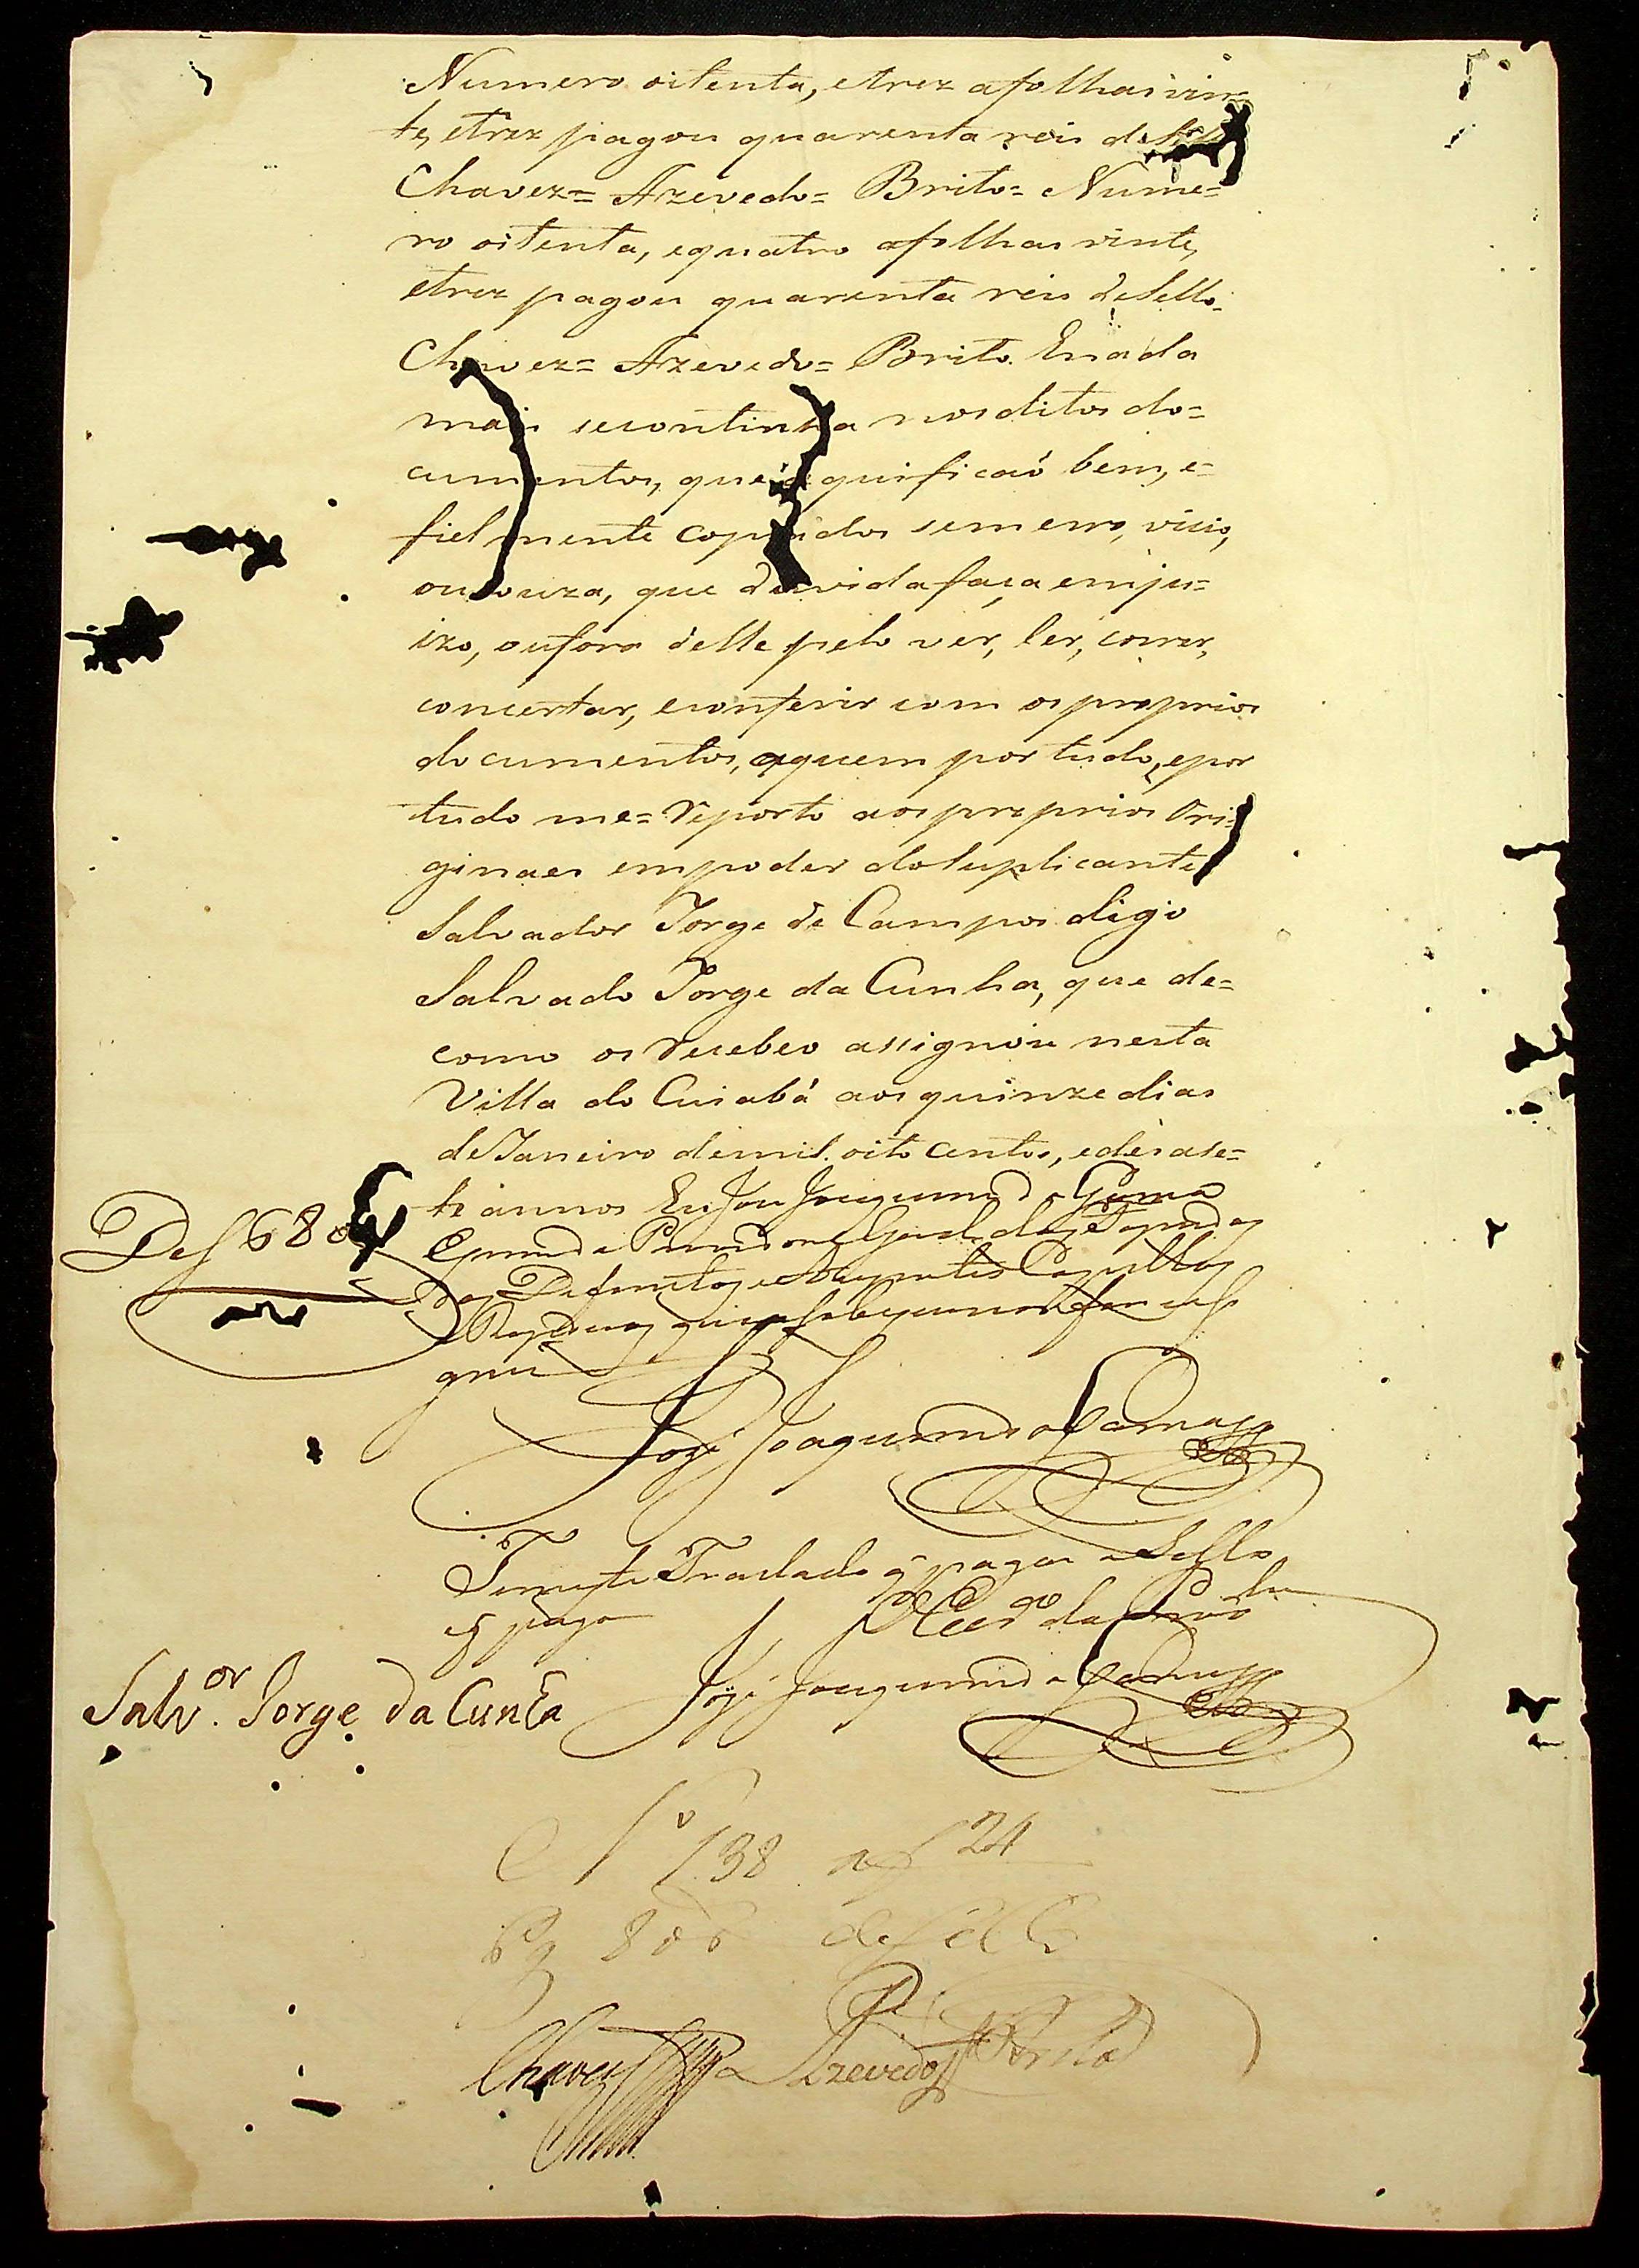 Numero oitenta, etrez afolhas vin
te, etrez pagou quarenta reis de Sello
Chavez= Azevedo= Brito= Nume=
ro oitenta, equatro afolhas vinte,
etrez pagou quarenta reis deSello.
Chavez= Azevedo= Brito. Enada
mais secontinha nosditos do=
cumentos, que aquificaõ bem, e=
fielmente copiados semerro, vicio,
oucouza, que duvidafaça emju=
izo, oufora delle pelo ver, ler, correr,
concertar, econferir com osproprios
documentos, aquem portudo, epor
tudo me= reporto aosproprios Ori=
ginaes empoder doSuplicante
Salvador Jorge de Campos digo
Salvado Jorge da Cunha, que de=
como os recebeo assignou nesta
Villa do Cuiabá aosquinze dias
deJaneiro demil. oito centos, edesase=
te annos Eu Joze Joaquim da Gama
Escrivaõ da Provedoria Geral das Fazendas
dos Defuntos e Auzentes Capellas
e Reziduos que osobescrevi e
gnei
José Joaquim da Gama
Tem este Traslado q pagar de Sello
José Joaquim da Gama
Salv.or Jorge da Cunha
N.o 138 af 24
Pg 80 r de Sello
Chavez Azevedo Brito